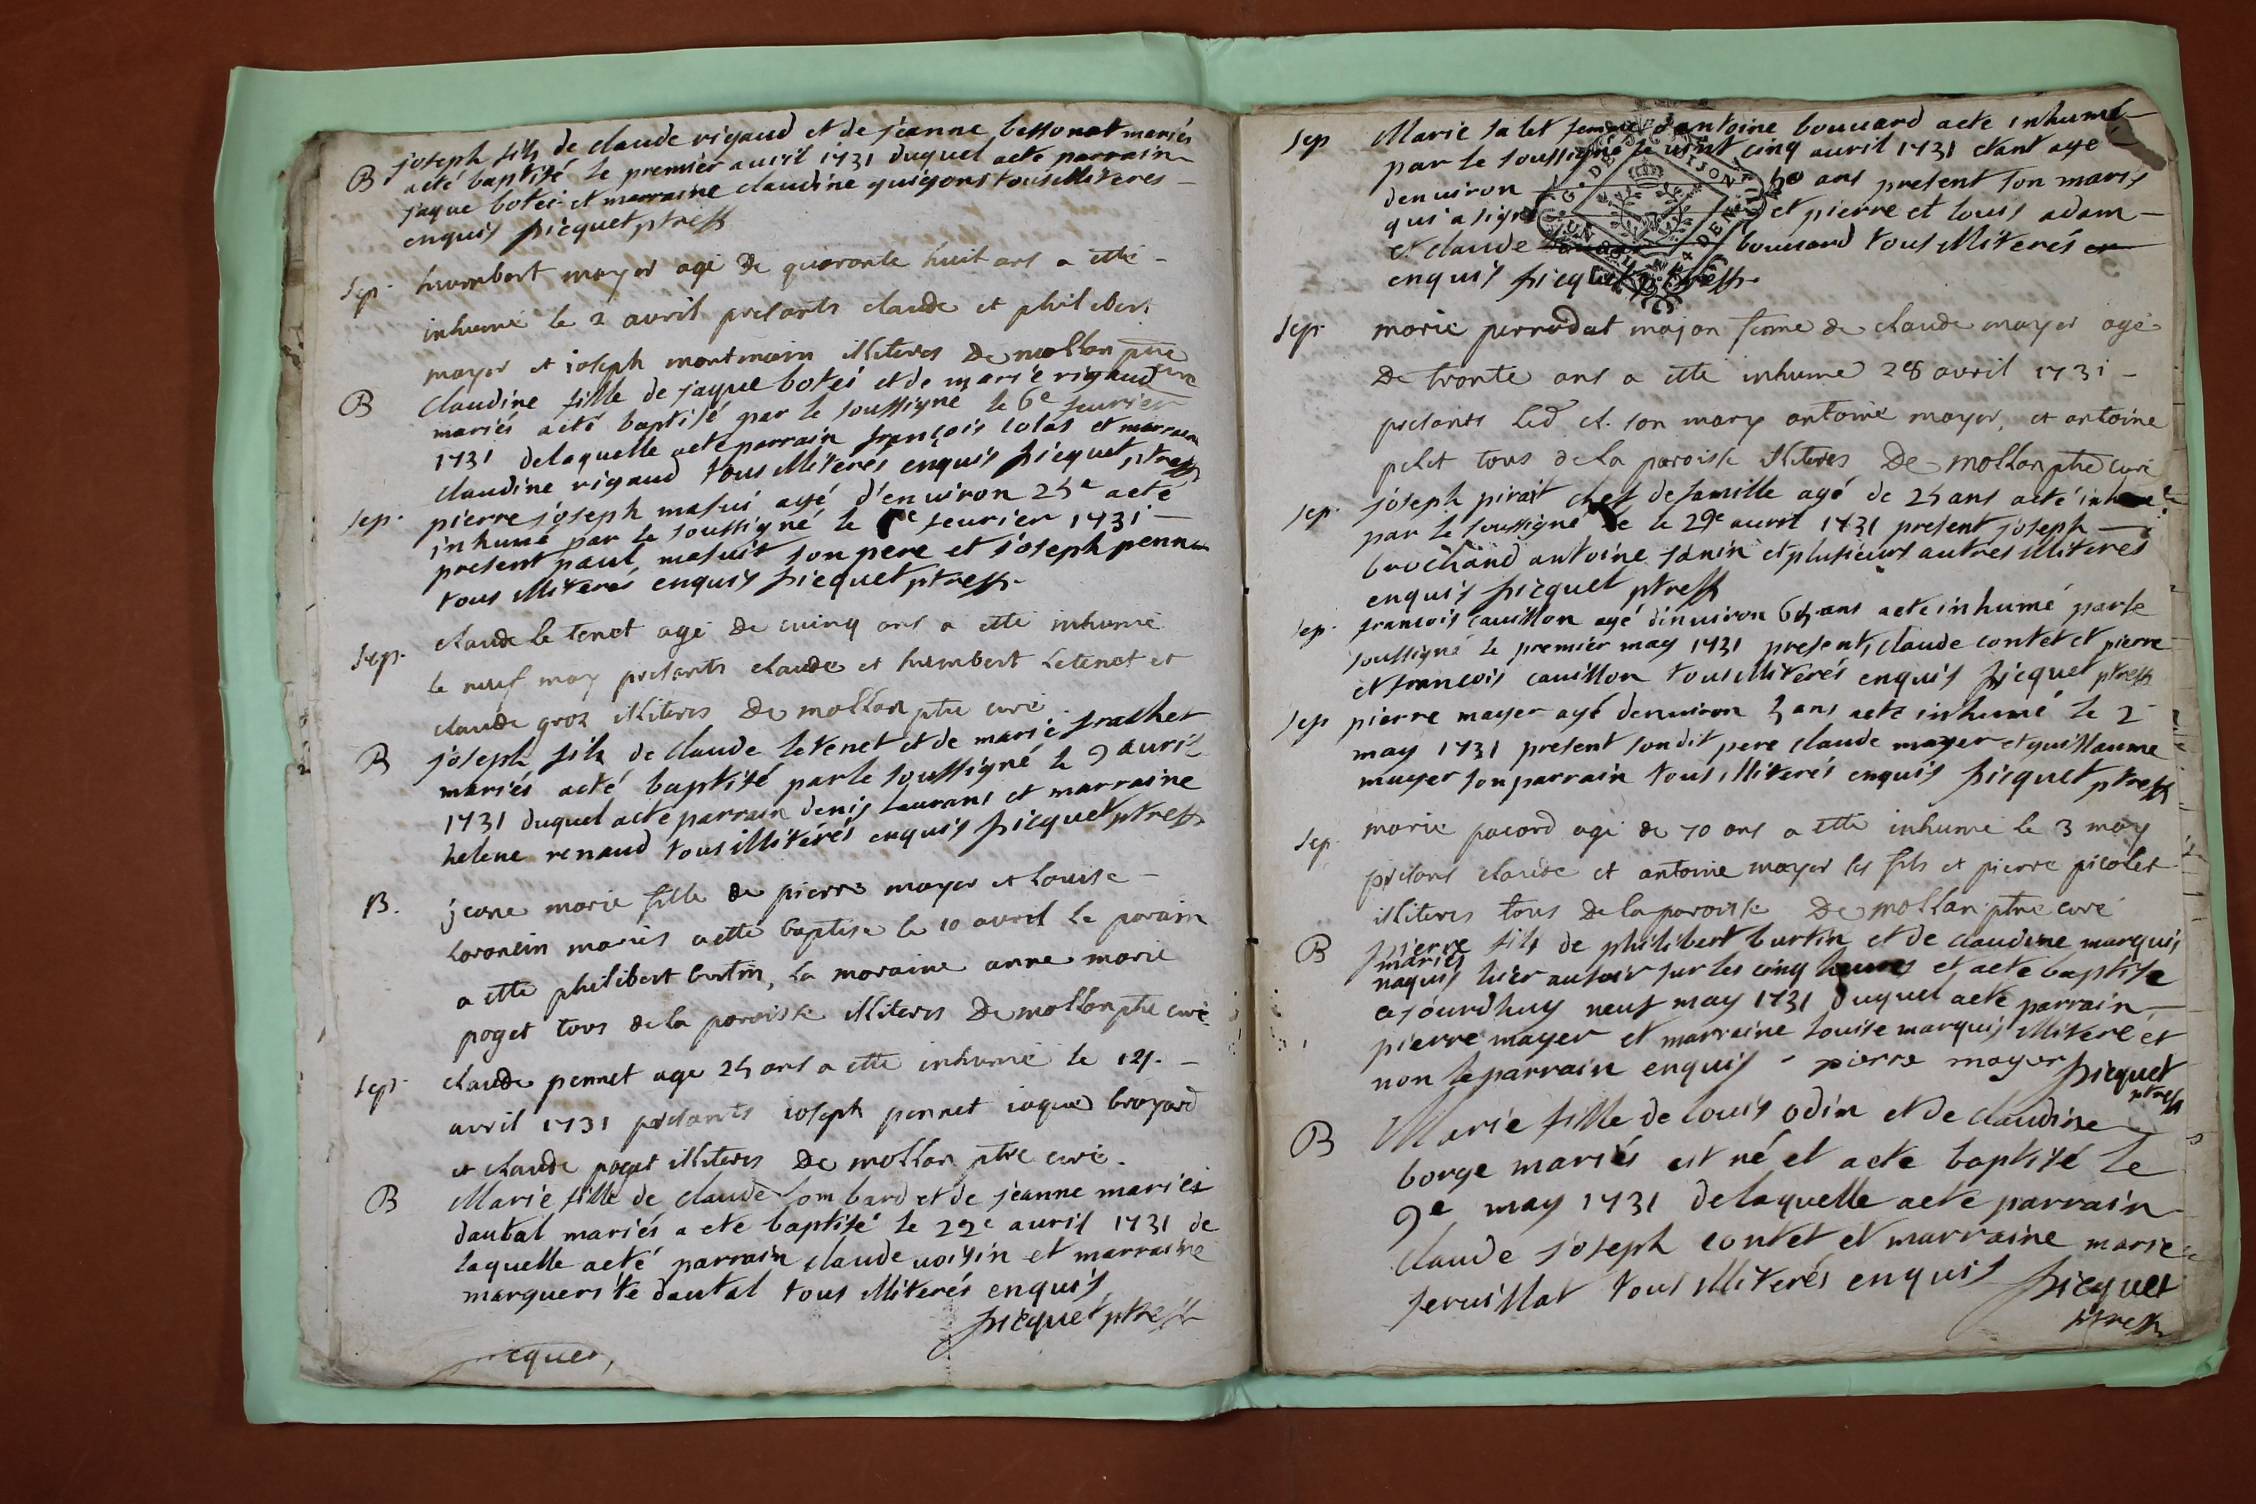 B joseph fils de claude rigaud et de jeanne bessonat mariés
a eté baptisé le premier auril 1731 duquel a eté parrain
jaque botei et marraine claudine guigon tous illiterés
enquis picquet ptre
sep. humbert mayer agé de quaronte huit ans a etté
inhumé le 2 avril presants claude et philebert
mayer et ioseph montmain illiteres De mollan ptre curé
B claudine fille de jaque botei et de marie rigaud
mariés a eté baptisé par le soussigné le 6e feurier
1731 de laquelle a eté parrain françois colas et marraine
claudine rigaud tous illiterés enquis picquet ptre
sep. pierre joseph masui agé d'enuiron 25e a eté
inhumé par le soussigné le feurier 1731
present paul masuit son pere et joseph pennet
tous illiterés enquis picquet ptre
sep. claude le tenet agé de cuinq ans a etté inhumé
le neuf may presants claude et humbert letenet et
claude groz illiteres De mollan ptre curé
B joseph fils de claude letenet et de marie frachet
mariés a eté baptisé par le soussigné le 9 auril
1731 duquel a eté parrain denis Laurans et marraine
helene renaud tous illiterés enquis picquet ptre
B. jeane marie fille de pierre mayer et louise
loronsin mariés a etté baptise le 10 avril le parain
a etté philibert burtin, la maraine anne marie
poget tous de la paroisse illiteres De mollan ptre curé
sep. claude pennet age 25 ans a etté inhumé le 12.
avril 1731 presants ioseph pennet iaque broyard
et claude poget illiteres De mollan ptre curé.
B Marie fille de claude Lombard et de jeanne mariei
dautal mariés a eté baptisé le 22e auril 1731 de
laquelle a eté parrain claude uoisin et marraine
marguerite dautal tous illiterés enquis
picquet ptre
sep Marie salet femme d'antoine bouuard a eté inhumé
par le soussigné le uint cinq auril 1731 etant agé
denuiron ans present son mary
qui a signé et pierre et louis adam
et claude bouuard tous illiterés
enquis picquet ptre
sep. marie perrodat majon feme de claude mayer agé
De tronte ans a etté inhumé 28 avril 1731
presants led cl. son mary antoine mayer, et antoine
pelet tous de la paroisse illiteres De mollan ptre curé
sep. joseph pirait chef de famille agé de 25 ans a eté inhumé
par le soussigné le 29e auril 1731 present joseph
brochand antoine janin et plusieurs autres illiterés
enquis picquet ptre
sep. francois cauillon agé d'enuiron 65 ans a eté inhumé par le
soussigné le premier may 1731 present, claude contet et pierre
et francois cauillon tous illiterés enquis picquet ptre
sep pierre mayer agé denuiron 3 ans a eté inhumé le 2
may 1731 present son dit pere claude mayer et guillaume
mayer son parrain tous illiterés enquis picquet ptre
sep. marie pacord agé de 70 ans a etté inhumé le 3 may
presans claude et antoine mayer ses fils et pierre picolet
illiteres tous de la paroisse De mollan ptre curé
B pierre fils de philibert burtin et de claudine marquis
mariés
naquis hier au soir sur les cinq heures et a eté baptise
ajourdhuy neuf may 1731 duquel a eté parrain
pierre mayer et marraine louise marquis illiteré et
non le parrain enquis pierre mayer picquet
ptre
B Marie fille de louis odin et de claudine
borge mariés est né et a eté baptisé le
9e may 1731 de laquelle a eté parrain
claude joseph contet et marraine marie
seruillat tous illiterés enquis picquet
ptre